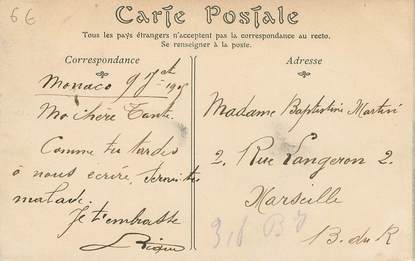 6€
Carte Postale
Tous les pays étrangers n'acceptent pas la correspondance au recto.
Se renseigner à la poste.
Correspondance
Monaco 9
Ma chère Tante.
Comme tu tardes
à nous écrire, serais tu
malade.
Je t'embrasse
Adresse
Madame Baptistine Martini
2, Rue Vangeron 2.
Marseille
B. du R